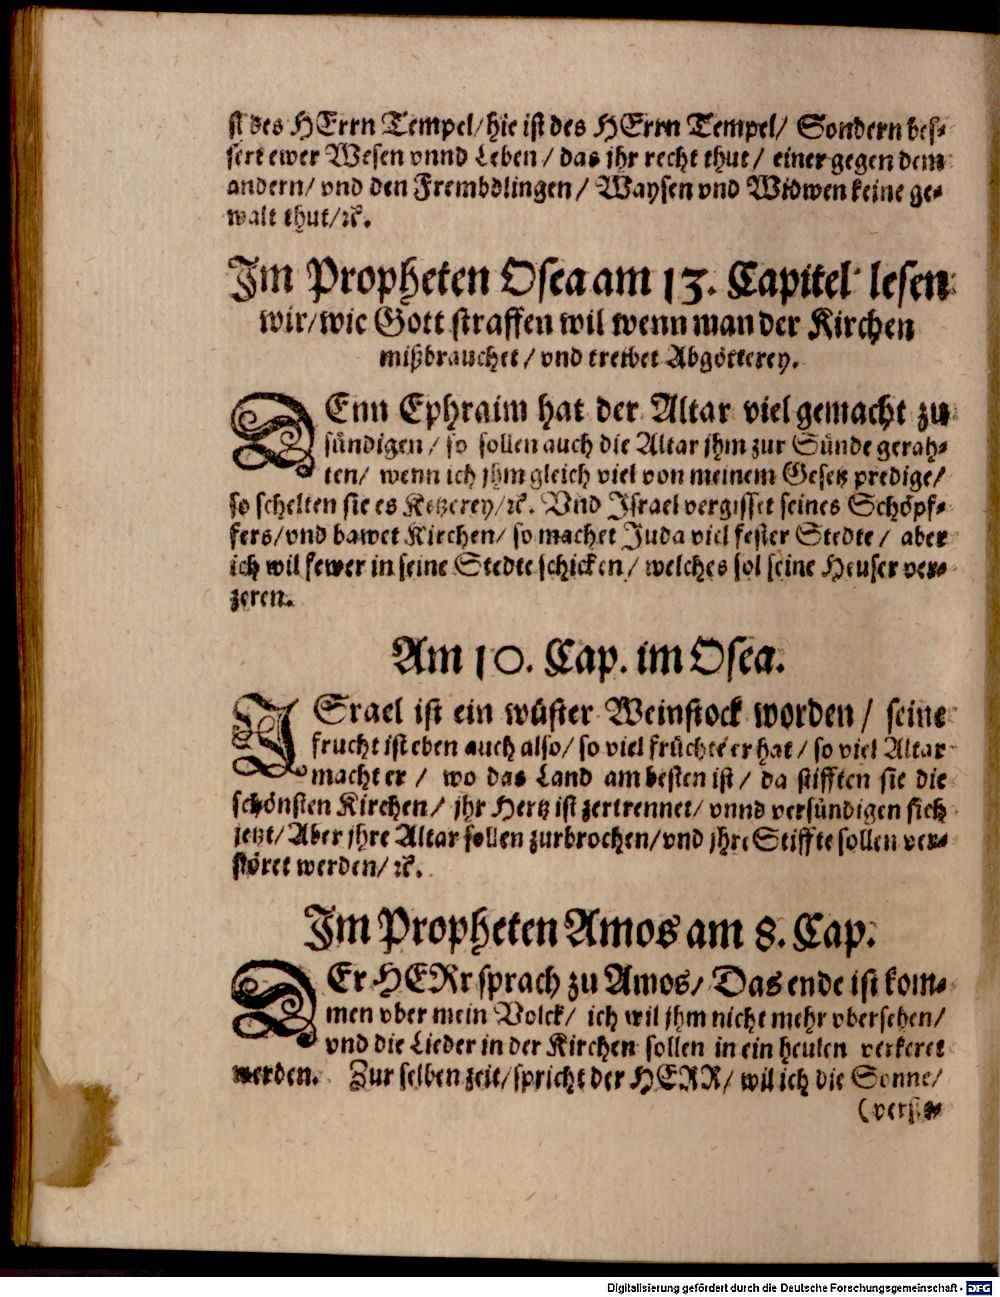 st des HErrn Tempel/hie ist des HErrn Tempel/ Sondern bes-
sert ewer Wesen vnnd Leben / das jhr recht thut / einer gegen dem
andern/ vnd den Frembdlingen / Waysen vnd Widwen keine ge-
walt thut/ꝛc.
Im Propheten Osea am 13. Capitel lesen
wir/wie Gott straffen wil wenn man der Kirchen
mißbrauchet / vnd treibet Abgötterey.
DEnn Ephraim hat der Altar viel gemacht zu
sündigen / so sollen auch die Altar jhm zur Sünde gerah-
ten/ wenn ich jhm gleich viel von meinem Gesetz predige/
so schelten sie es Ketzerey/ꝛc. Vnd Israel vergisset seines Schöpf-
fers/vnd bawet Kirchen/ so machet Juda viel fester Stedte / aber
ich wil fewer in seine Stedte schicken / welches sol seine Heuser ver-
zeren.
Am 10. Cap. im Osea.
ISrael ist ein wüster Weinstock worden / seine
frucht ist eben auch also/ so viel früchte er hat / so viel Altar
macht er / wo das Land am besten ist / da stifften sie die
schönsten Kirchen/ jhr Hertz ist zertrennet/ vnnd versündigen sich
jetzt/ Aber jhre Altar sollen zurbrochen/vnd jhre Stiffte sollen ver-
störet werden/ ꝛc.
Im Propheten Amos am 8. Cap.
DEr HERr sprach zu Amos/ Das ende ist kom-
men vber mein Volck/ ich wil jhm nicht mehr vbersehen/
vnd die Lieder in der Kirchen sollen in ein heulen verkeret
werden. Zur selben zeit/spricht der HERR/ wil ich die Sonne/
Digitalisierung gefördert durch die Deutsche Forschungsgemeinschaft - DFG